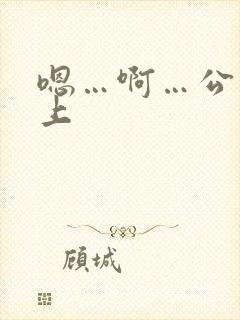 嗯…啊…公
上
顾城